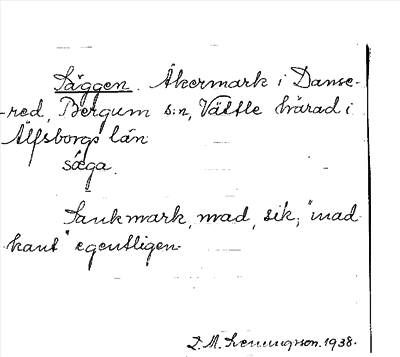 Säggen. Åkermark i Danse-
red, Bergum s:n, Vättle härad i
Älfsborgs län
säga.
Sankmark, mad, sik; "mad
kant" egentligen.
D. M. Svenungsson. 1938.